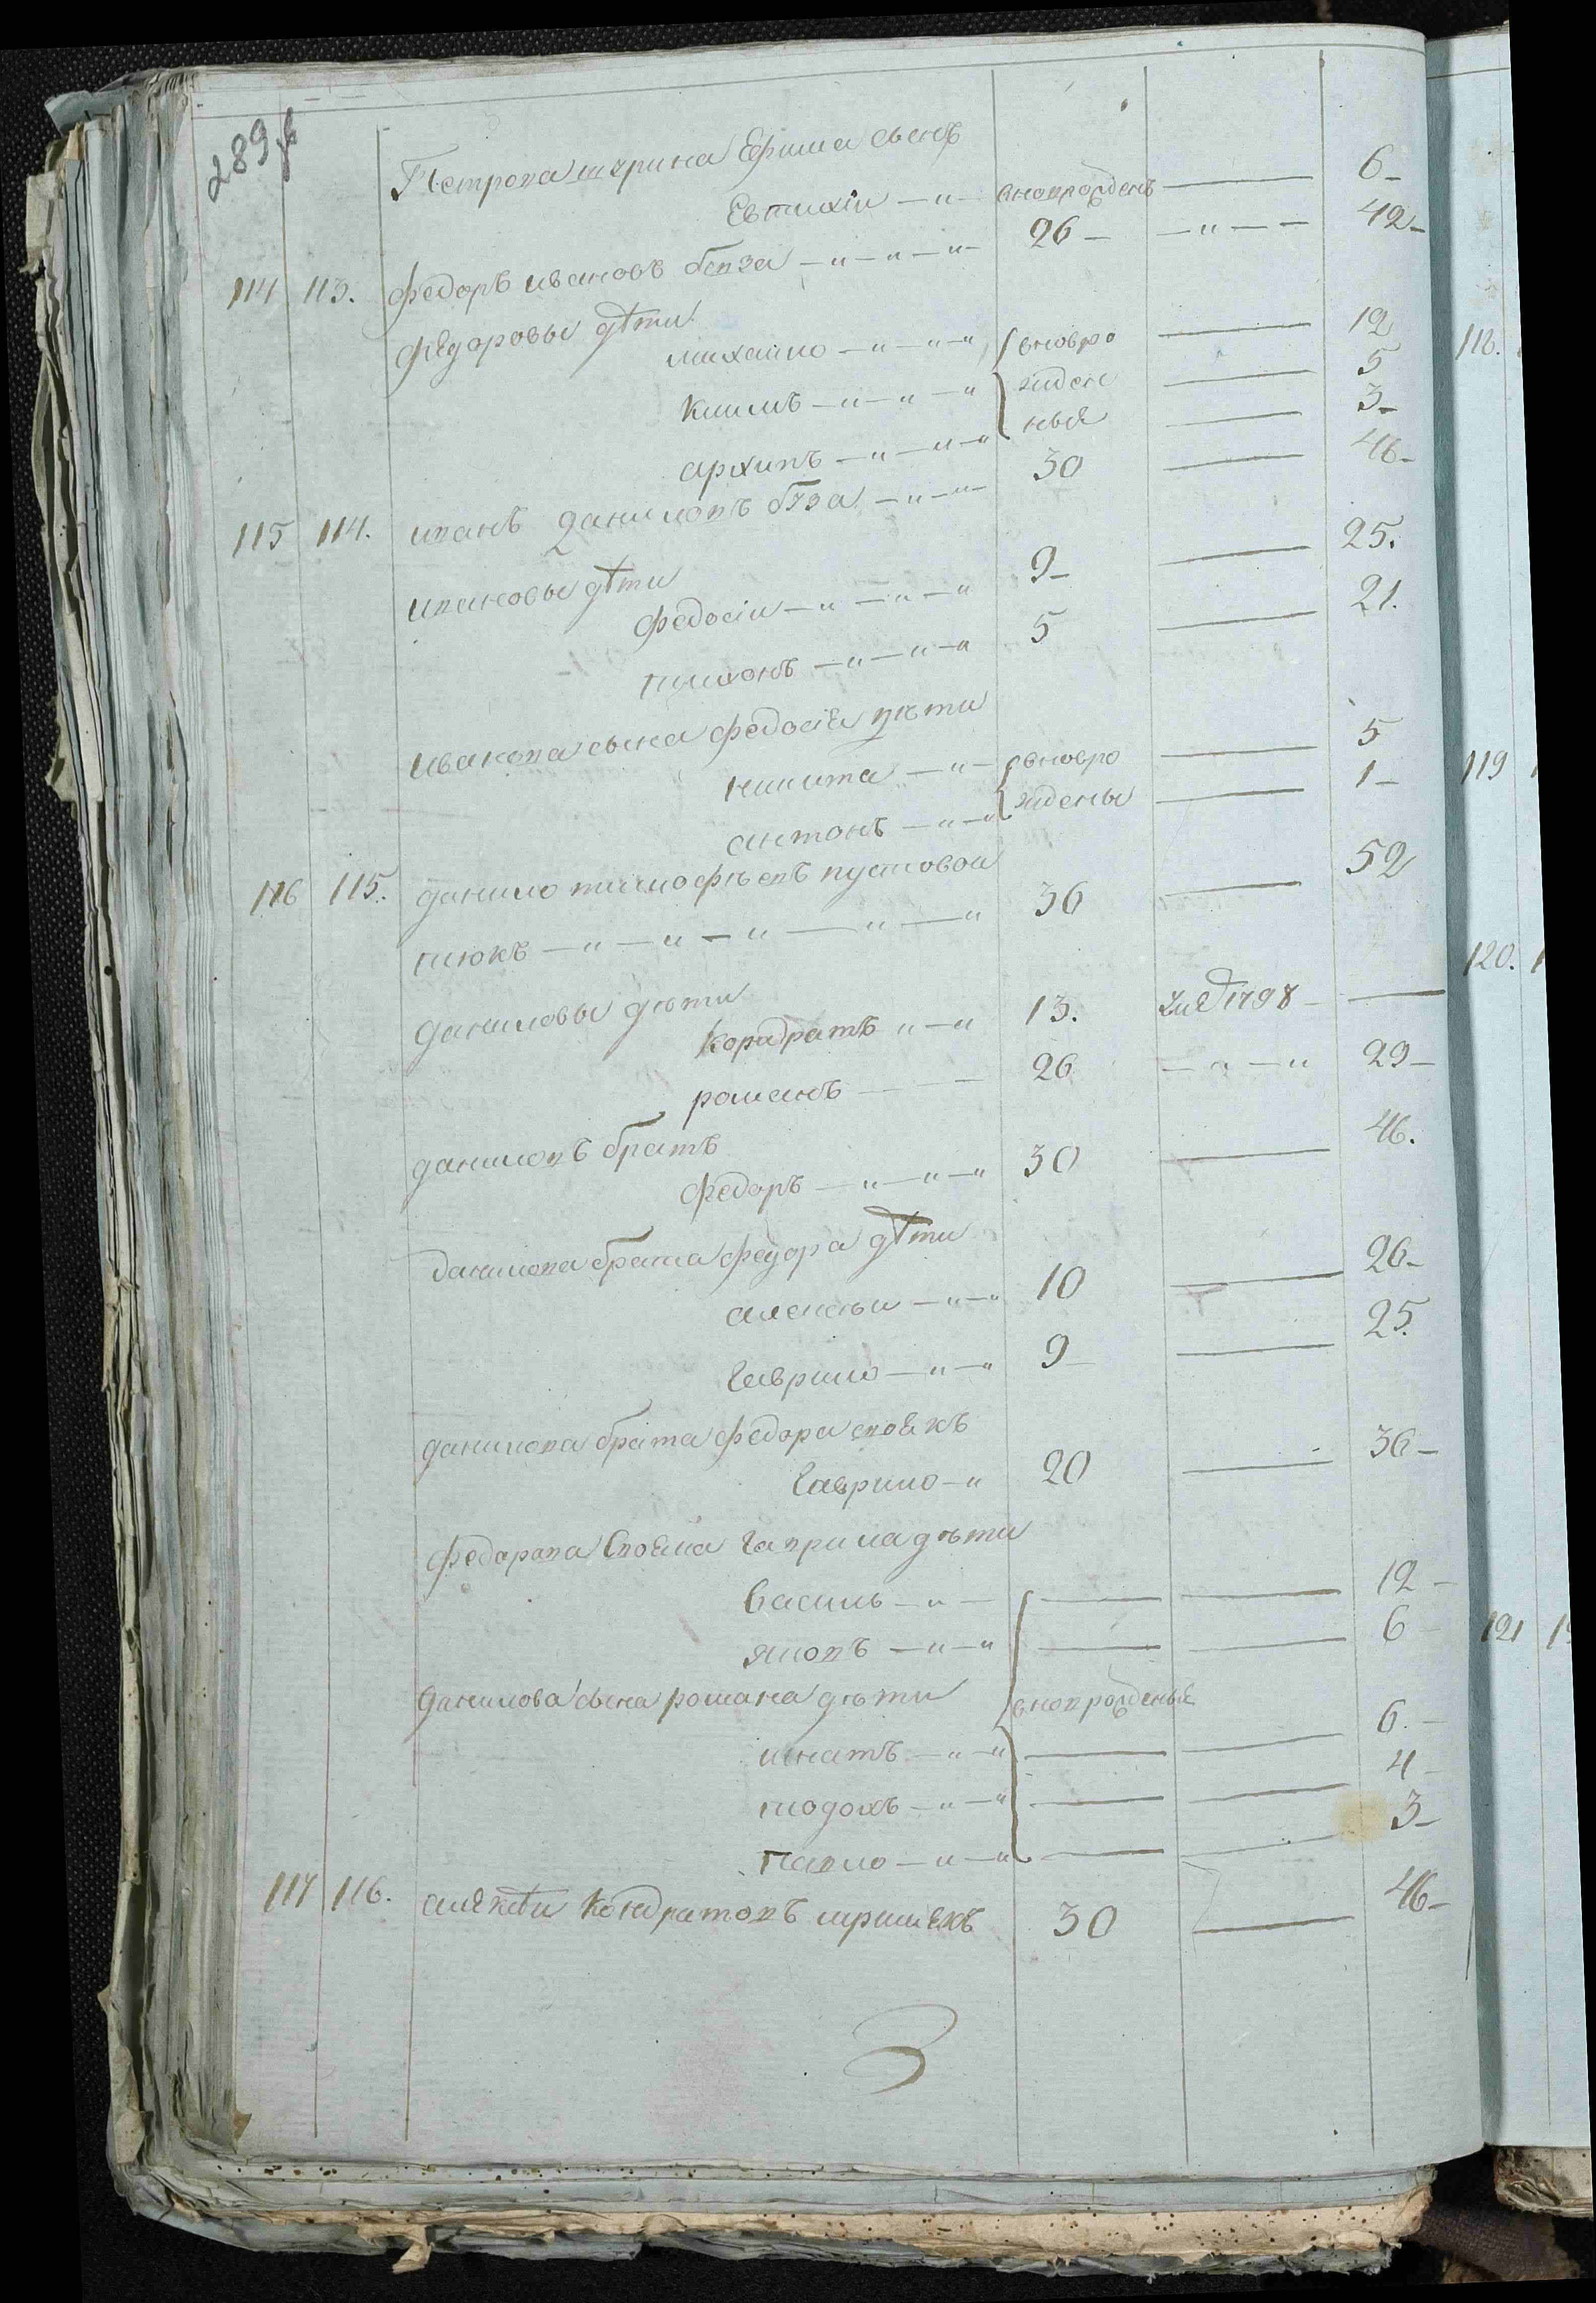 289
Петрова шурина Ефима сынъ
Евтихiи — " — вновърожденъ — 6 —
114 113. федоръ ивановъ беза — " — " — " — 26 — — " — — 42 —
федоровы дѣти
михайло — " — " — " вновро — 12
климъ — " — " — " жден — 5
архипъ — " — " — " ныя — 3 —
115 114. иванъ даниловъ бѣза — " — " — 30 — 46 —
ивановы дѣти
федосiи — " — " — " 9 — — 25.
тихонъ — " — " — " 5 — 21.
иванова сына федосiя дѣти
никита — " — вновро — 5
антонъ — " — " ждены — 1 —
116 115. данило тимофѣевъ пустовои
тюкъ — " — " — " — " — " 36 — 52
даниловы дѣти
кондратъ " — " 13. 1798 — —
романъ — — 26 — " — " 29 —
даниловъ братъ
федоръ — " — " — " 30 — 46.
данилова брата федора дѣти
алексѣи — " — " 10 — 26 —
гаврило — " — " 9 — — 25.
данилова брата федора своякъ
гаврило — " 20 — 36 —
федорова свояка гаврила дѣти
василь — " — — — 12 —
яковъ — " — " — — 6 —
данилова сына романа дѣти вновърожденыя
игнатъ — " — " — — 6. —
тодохъ — " — " — — 4 —
павло — " — " — — 3 —
117 116. алексѣи кондратовъ 30 — 46 —
3
118.
119
120.
121